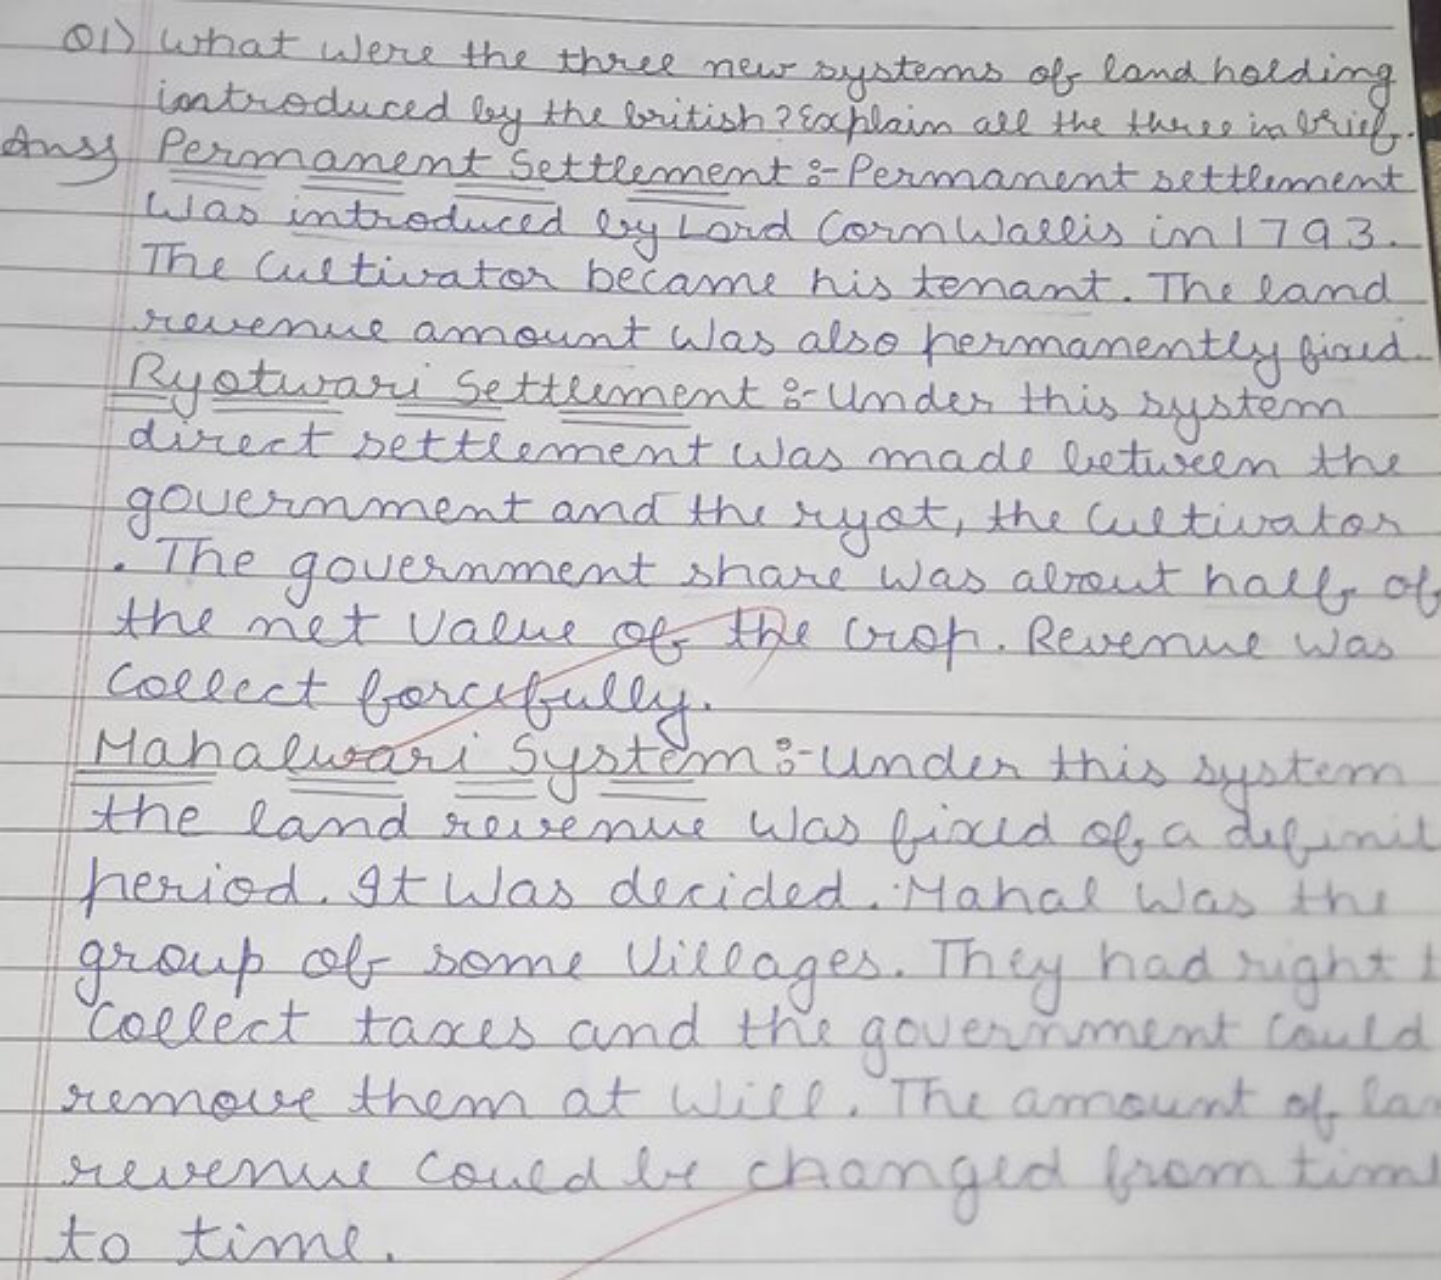 Q1) What were the three new systems of land holding
introduced by the british? Explain all the three in brief.
Ans) Permanent Settlement :- Permanent settlement
was introduced by Lord CornWallis in 1793.
The Cultivator became his tenant. The land
revenue amount was also permanently fixed.
Ryotwari Settlement :- Under this system
direct settlement was made between the
government and the ryot, the Cultivator
. The government share was about half of
the net value of the crop. Revenue was
Collect forcefully.
Mahalwari System :- Under this system
the land revenue was fixed of a definit
period. It was decided. Mahal was the
group of some Villages. They had right t
Collect taxes and the government could
remove them at will. The amount of lan
revenue could be changed from tim
to time.